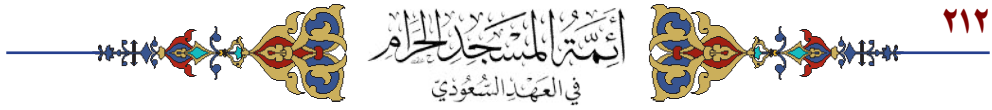 ٢١٢
أئمة المسجد الحرام
في العهد السعودي